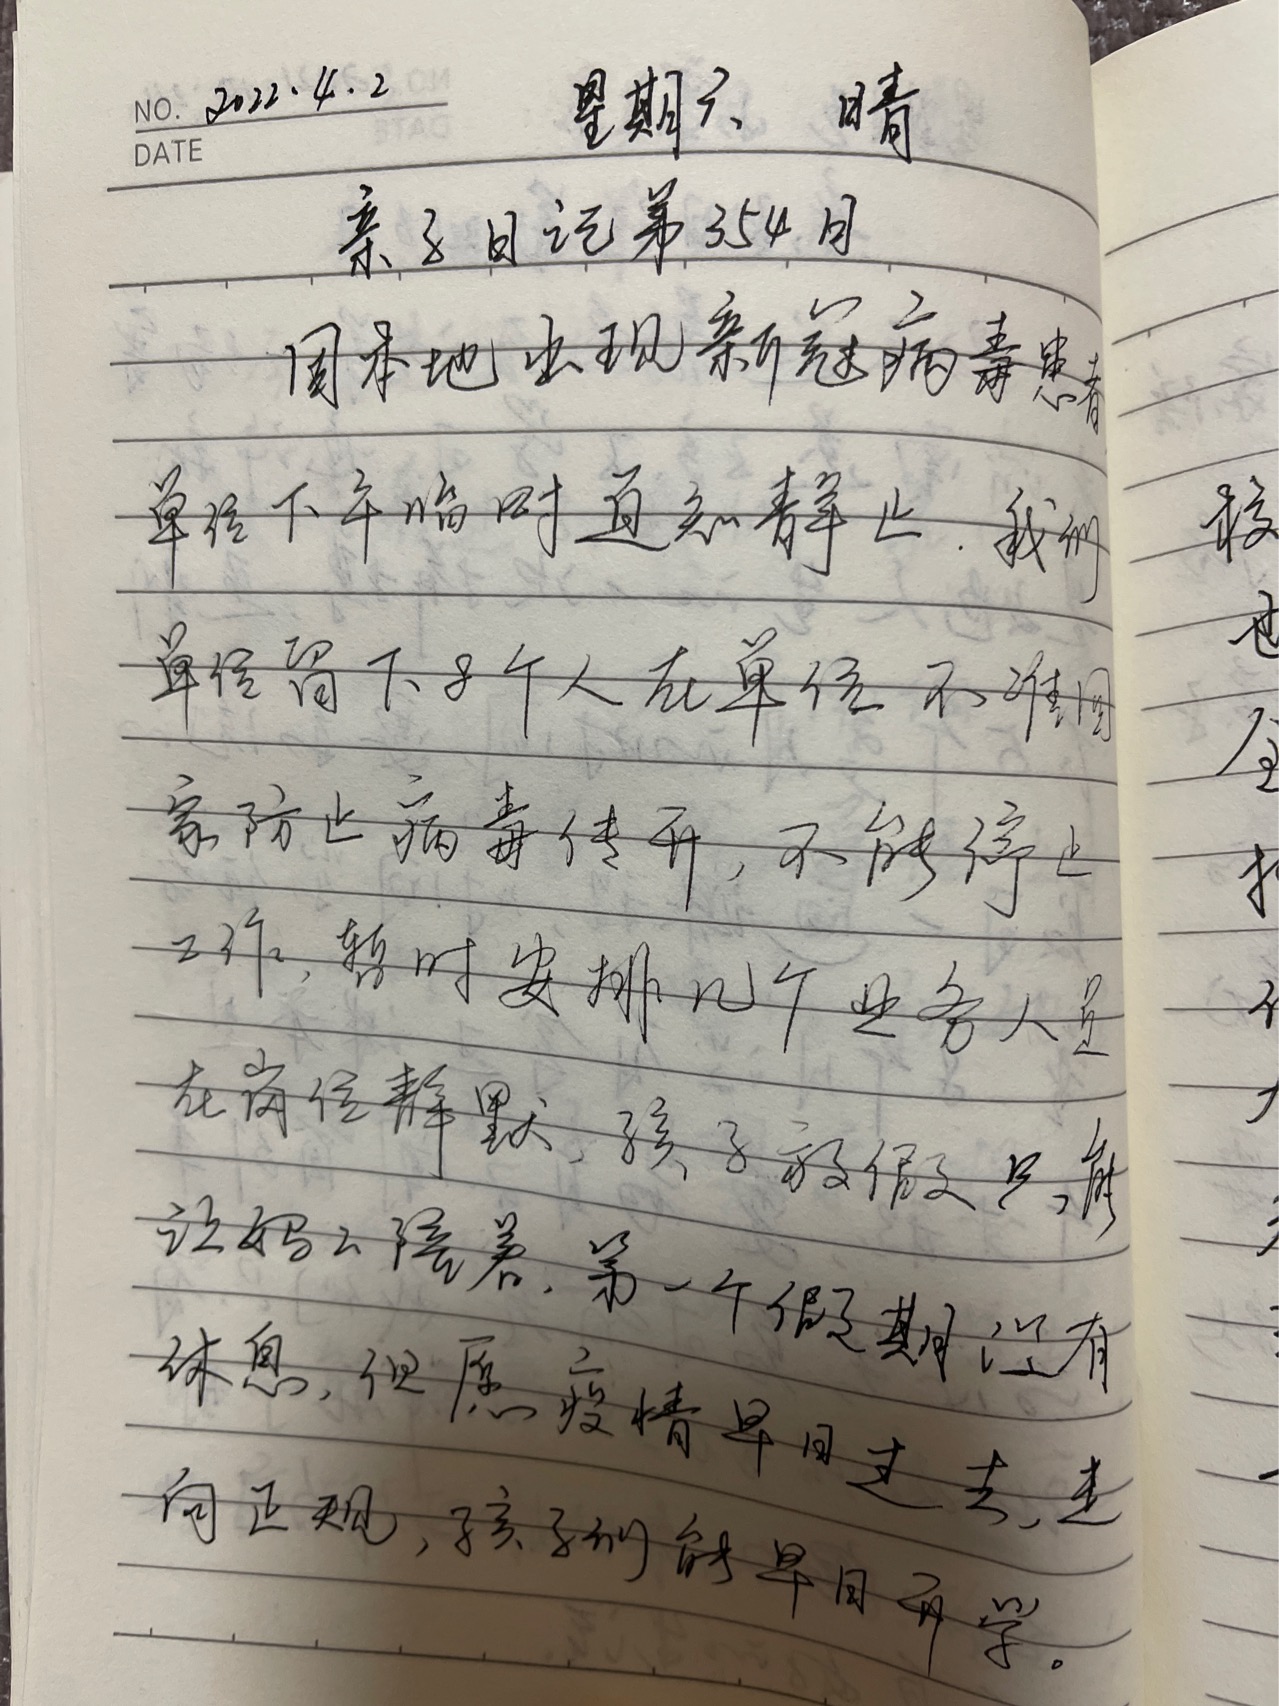 NO. 2022.4.2 星期六 晴
DATE
亲子日记第354日
因本地出现新冠病毒患者
单位下午临时通知静止.我们
单位留下8个人在单位不准回
家防止病毒传开,不能停止
工作,暂时安排几个业务人员
在岗位静默,孩子放假只能
让妈妈陪着.第一个假期没有
休息,但愿疫情早日过去,走
向正规,孩子们能早日开学。
校
也